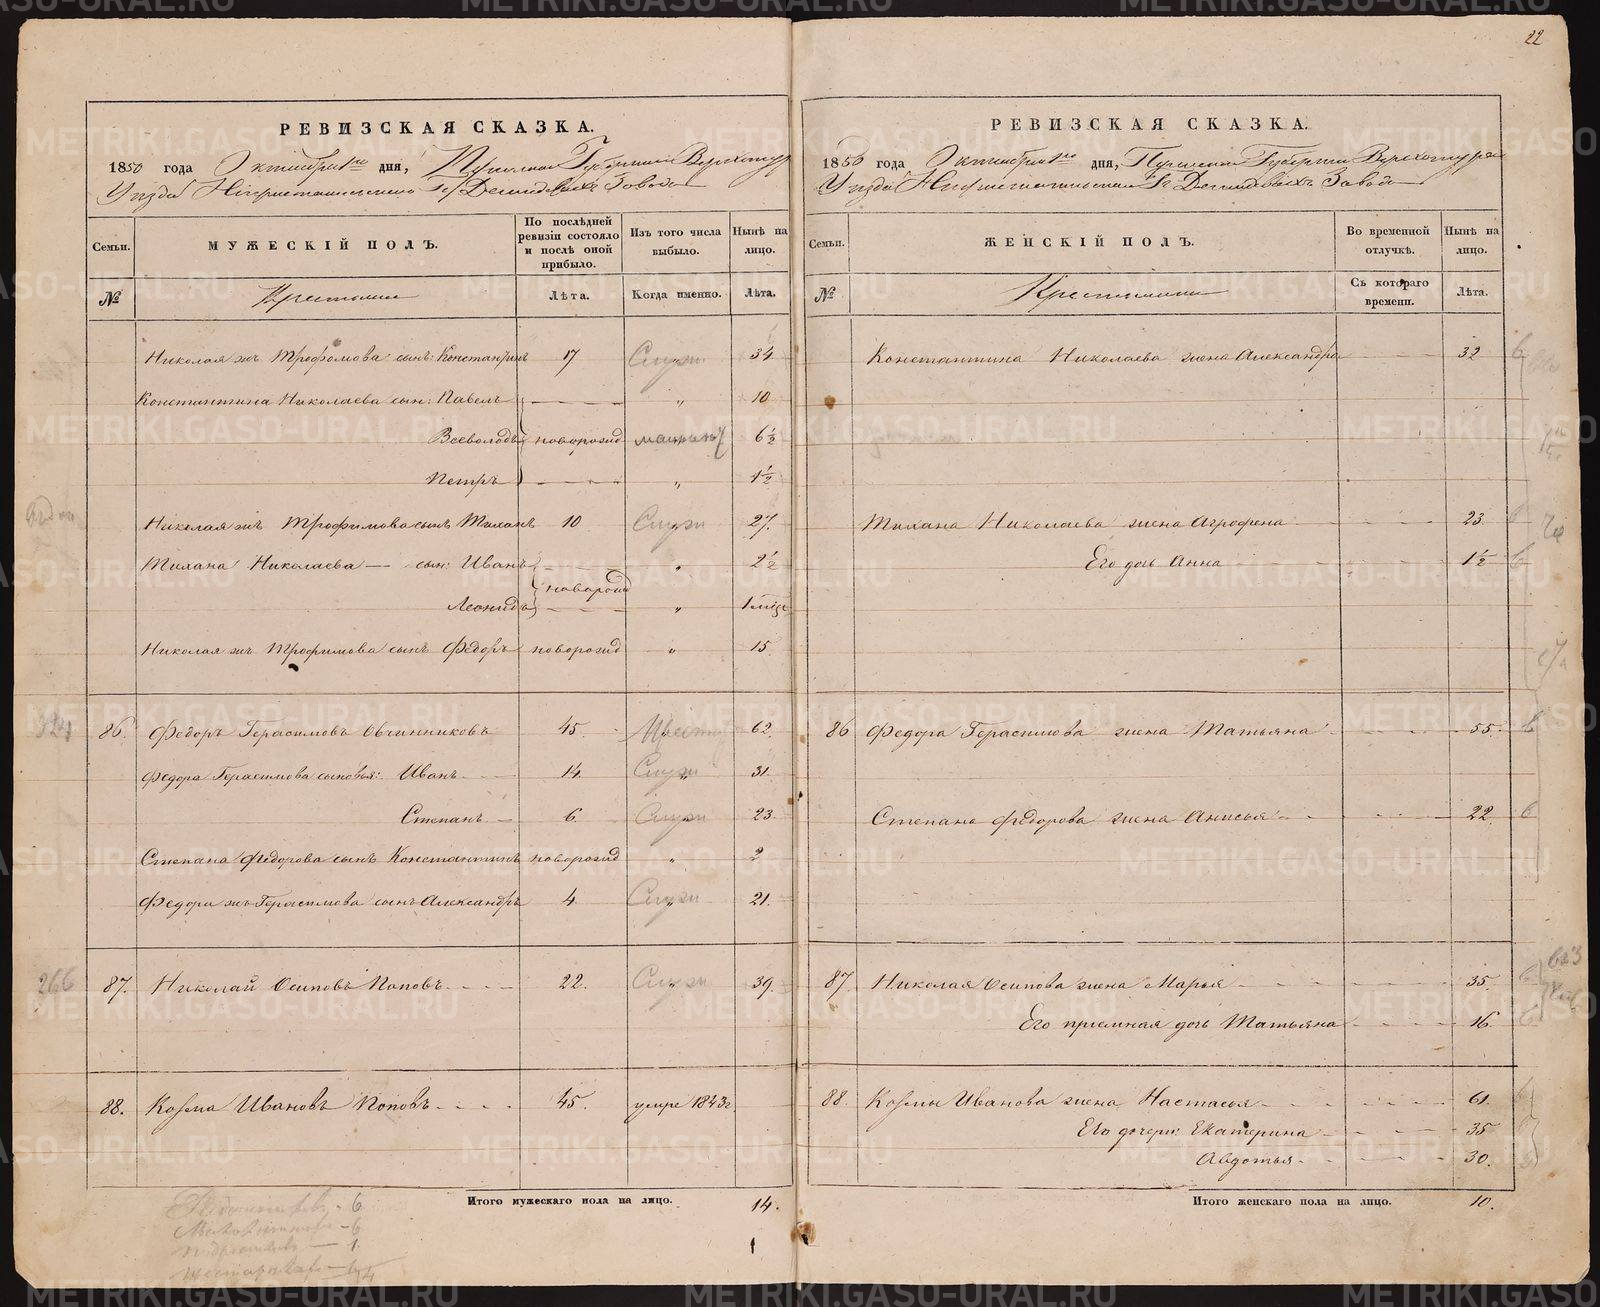 22
РЕВИЗСКАЯ СКАЗКА.
1850 года Октября дня, Пермской Губернии Верхотур
Уезда Нижнетагильского Гг. Демидовыхъ Завода
Семьи.
МУЖЕСКІЙ ПОЛЪ.
По послѣдней ревизіи состояло и послѣ оной прибыло.
Изъ того числа выбыло.
Нынѣ на лицо.
№
Крестьяне
Лѣта.
Когда именно.
Лѣта.
Николая жъ Трофимова сынъ: Константинъ 17 34
Константина Николаева сын: Павелъ „ 10
Всеволодъ новорожд 6½
Петръ „ 1½
Николая жъ Трофимова сынъ Михаилъ 10 27.
Михаила Николаева — сын: Иванъ „ 2½
новорожд
Леонидъ „ 1 мѣсц
Николая жъ Трофимова сынъ Федоръ новорожд „ 15
324 86. Федоръ Герасимовъ Овчинниковъ 45. 62.
Федора Герасимова сыновья: Иванъ 14. 31.
Степанъ 6. 23
Степана Федорова сынъ Константинъ новорожд „ 2
Федора жъ Герасимова сынъ Александръ 4 21.
266 87. Николай Осиповъ Поповъ 22. 39.
88. Козма Ивановъ Поповъ 45. умре 1843г
Итого мужескаго пола на лицо. 14.
РЕВИЗСКАЯ СКАЗКА.
1850 года Октября дня, Пермской Губернии Верхотурск
Уезда Нижнетагильскаго Гг. Демидовыхъ Завода
Семьи.
ЖЕНСКІЙ ПОЛЪ.
Во временной отлучкѣ.
Нынѣ на лицо.
№
Крестьянки
Съ котораго времени.
Лѣта.
Константина Николаева жена Александра 32
Михаила Николаева жена Агрофена 23.
Его дочь Анна 1½
86 Федора Герасимова жена Татьяна 55.
Степана Федорова жена Анисья 22.
87. Николая Осипова жена Марья 35.
Его приемная дочь Татьяна 16.
88. Козмы Иванова жена Настасья 61.
Его дочери: Екатерина 35
Авдотья 30.
Итого женскаго пола на лицо. 10.
METRIKI.GASO-URAL.RU